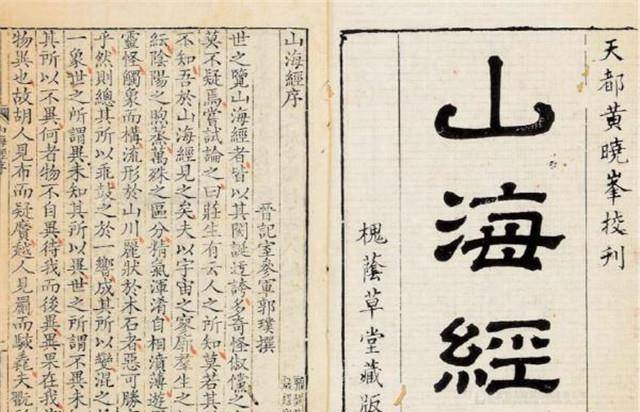 天都黄曉峯校刊
山海經
槐蔭草堂藏版
山海經序
晉記室參軍郭璞撰
世之覽山海經者皆以其閎誕迂誇多奇怪俶儻之
莫不疑焉嘗試論之曰莊生有云人之所知莫若其
不知吾於山海經見之矣夫以宇宙之寥廓羣生之
紜陰陽之煦蒸萬殊之區分精氣渾淆自相濆薄遊
靈怪觸象而構流形於山川麗狀於木石者惡可勝
乎然則總其所以乖鼓之於一響成其所以變混之
一象世之所謂異未知其所以異世之所謂不異未
其所以不異何者物不自異待我而後異異果在我
物異也故胡人見布而疑黂越人見罽而駭毳夫
山海經序